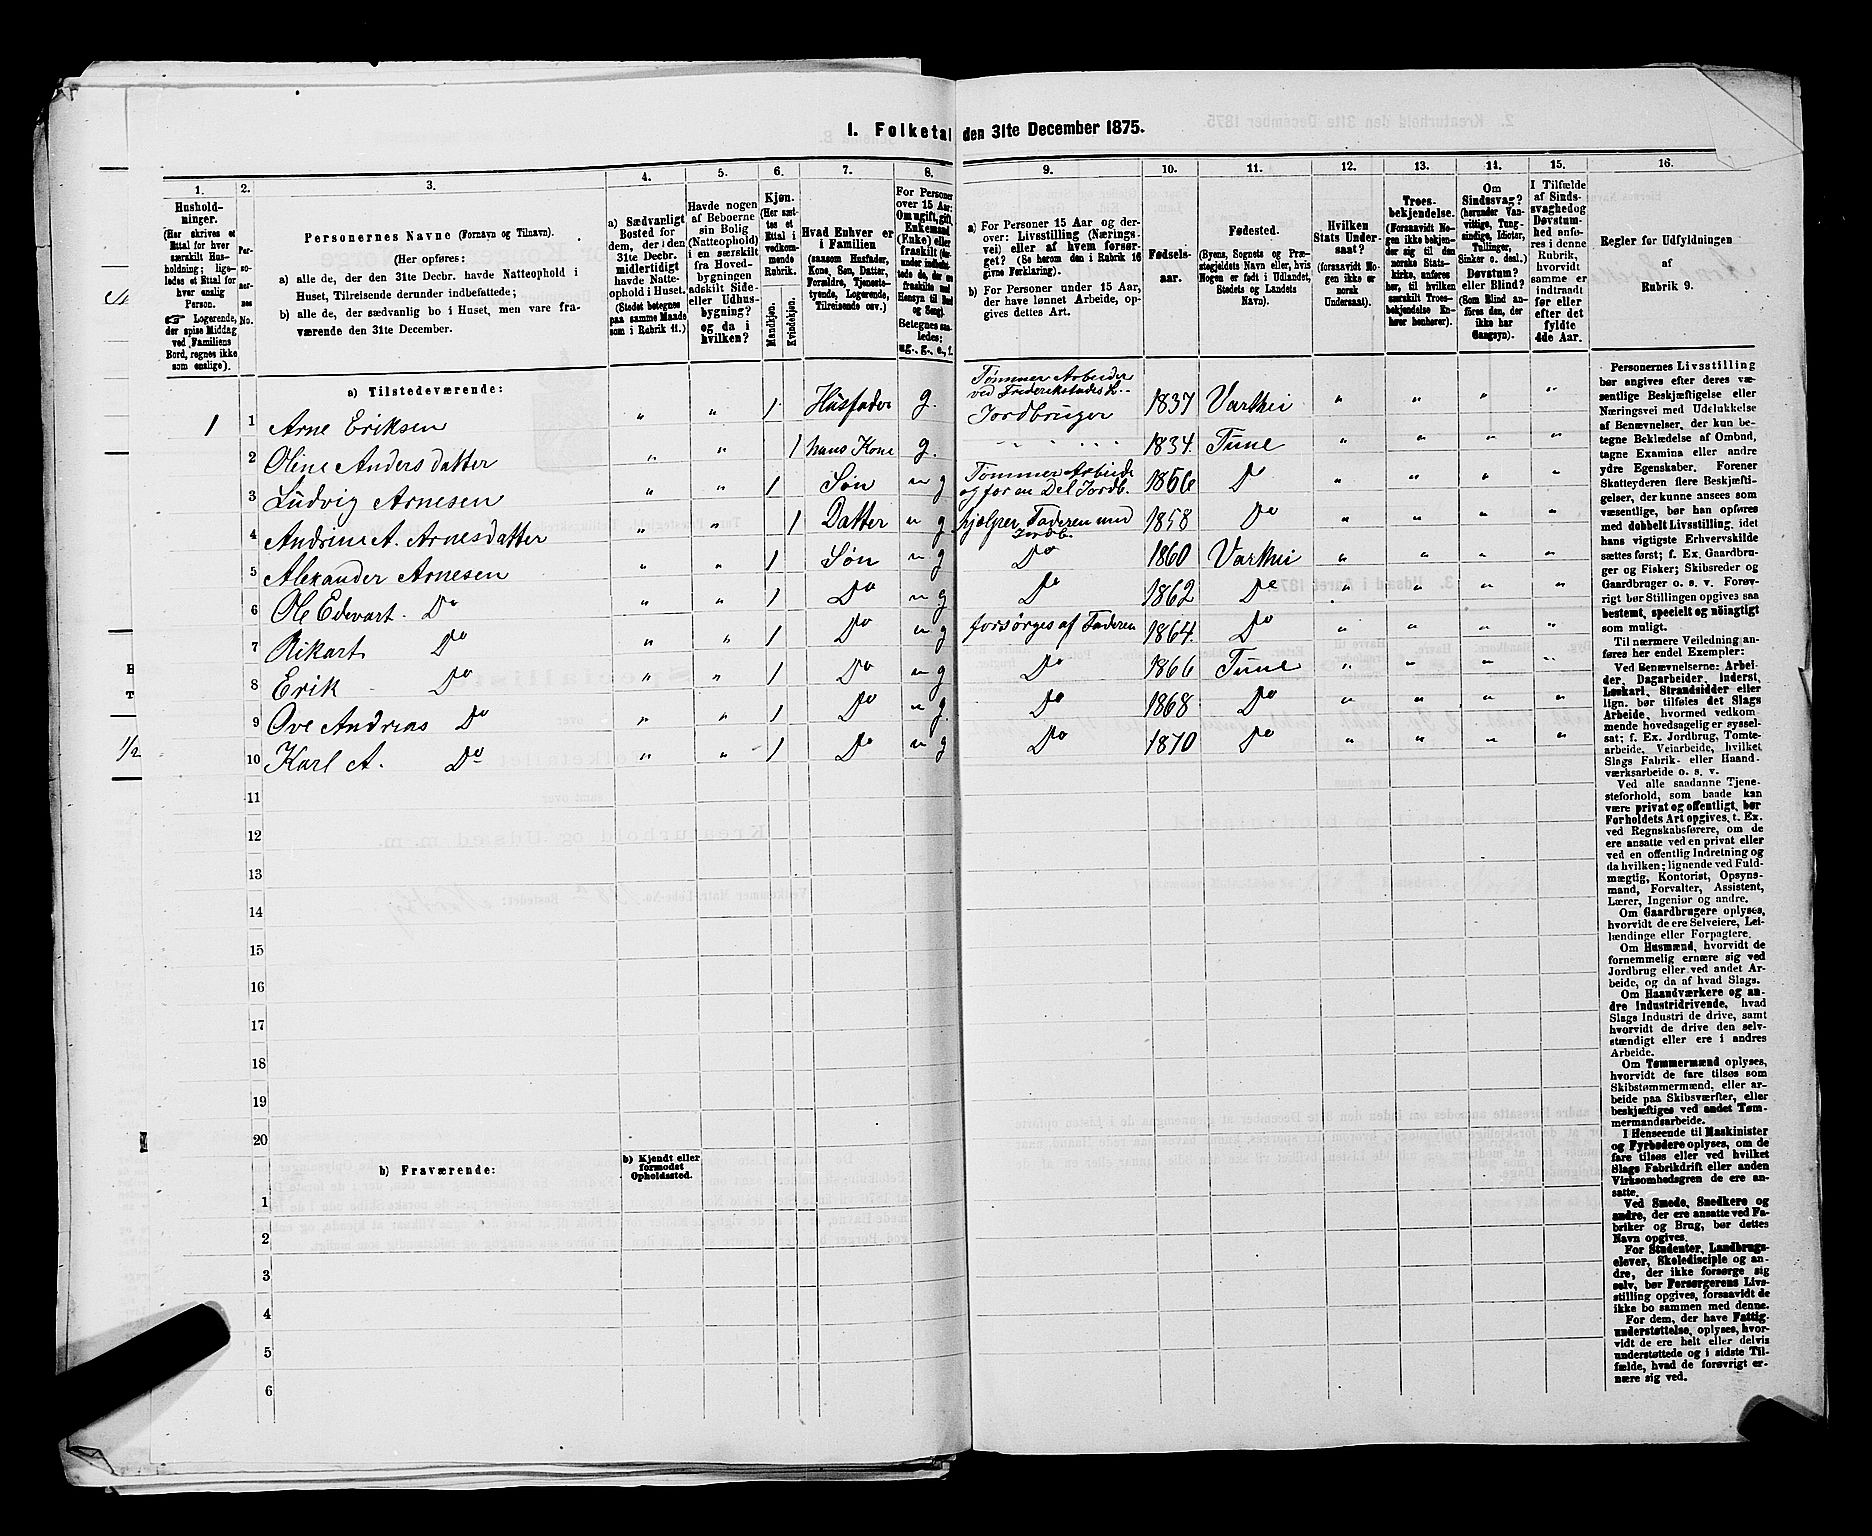 1. Folketal den 31te December 1875.
1.
Hushold-
ninger.
(Her skrives et
Ettal for hver
særskilt Hus-
holdning; lige-
ledes et Ettal for
hver enslig
Person.
Logerende,
der spise Middag
ved Familiens
Bord, regnes ikke
som enslige).
2.
Per-
so-
ner-
nes
No.
3.
Personernes Navne (Fornavn og Tilnavn).
(Her opføres:
a) alle de, der den 31te Decbr. havde Natteophold i
Huset, Tilreisende derunder indbefattede;
b) alle de, der sædvanlig bo i Huset, men vare fra-
værende den 31te December.
4.
a) Sædvanligt
Bosted for
dem, der i den
31te Decbr.
midlertidigt
havde Natte-
ophold i Huset.
(Stedet betegnes
paa samme Maade
som i Rubrik 11.)
5.
Havde nogen
af Beboerne
sin Bolig
(Natteophold)
i en særskilt
fra Hoved-
bygningen
adskilt Side-
eller Udhus-
bygning?
og da i
hvilken?
6.
Kjøn.
(Her sæt-
tes et
Ettal i
vedkom-
mende
Rubrik.
Mandkjøn.
Kvindekjøn.
7.
Hvad Enhver er
i Familien
(saasom Husfader,
Kone, Søn, Datter,
Forældre, Tjeneste-
tyende, Logerende,
Tilreisende osv.)
8.
For Personer
over 15 Aar:
Om ugift, gift,
Enkemand
(Enke) eller
fraskilt
Betegnes saa-
ledes:
ug., g., e., f.
9.
a) For Personer 15 Aar og der-
over: Livsstilling (Nærings-
vei) eller af hvem forsør-
get? (Se herom den i Rubrik 16
givne Forklaring).
b) For Personer under 15 Aar,
der have lønnet Arbeide, op-
gives dettes Art.
10.
Fødsels-
aar.
11.
Fødested.
(Byens, Sognets og Præ-
stegjeldets Navn eller, hvis
Nogen er født i Udlandet,
Stedets og Landets
Navn).
12.
Hvilken
Stats Under-
saat?
(forsaavidt No-
gen ikke er
norsk
Undersaat).
13.
Troes-
bekjendelse.
(Forsaavidt No-
gen ikke bekjen-
der sig til den
norske Stats-
kirke, anføres
her, til hvilken
særskilt Troes-
bekjendelse En-
hver henhører).
14.
Om
Sindssvag?
(herunder Van-
vittige, Tung-
sindige, Idioter,
Tullinger,
Sinker o. desl.)
Døvstum?
eller Blind?
(Som Blind an-
føres den, der
ikke har
Gangsyn).
15.
I Tilfælde
af Sinds-
svaghed og
Døvstum-
hed anfø-
res i denne
Rubrik,
hvorvidt
samme er
indtraadt
før eller
efter det
fyldte
4de Aar.
16.
Regler for Udfyldningen
af
Rubrik 9.
a) Tilstedeværende:
1 1 Arne Eriksen " " 1 Husfader g. Tømmer Arbeider ved Frederikstades L. Jordbruger 1837 Varthei " " " "
2 Oline Andersdatter " " 1 hans Kone g. " " " " " 1834. Tune " " " "
3 Ludvig Arnesen " " 1 Søn u g Tømmer Arbeide og for en Del Jordb. 1856 Do " " " "
4 Andrine A. Arnesdatter " " 1 Datter u g hjælper Faderen med Jordb. 1858 Do " " " "
5 Alexander Arnesen " " 1 Søn u g Do 1860 Varthei " " " "
6 Ole Edevart. Do " " 1 Do u g Do 1862 Do " " " "
7 Rikart Do " " 1 Do u g forsørges af Faderen 1864. Do " " " "
8 Erik Do " " 1 Do u g Do 1866 Tune " " " "
9 Ove Andreas Do " " 1 Do u g. Do 1868 Do " " " "
10 Karl A. Do " " 1 Do u g Do 1870 Do " " " "
11
12
13
14
15
16
17
18
19
20
b) Fraværende:
b) Kjendt eller
formodet
Opholdssted.
1
2
3
4
5
6
Personernes Livsstilling
bør angives efter deres væ-
sentlige Beskjæftigelse eller
Næringsvei med Udelukkelse
af Benævnelser, der kun be-
tegne Beklædelse af Ombud,
tagne Examina eller andre
ydre Egenskaber. Forener
Skatteyderen flere Beskjæfti-
gelser, der kunne ansees som
væsentlige, bør han opføres
med dobbelt Livsstilling, idet
hans vigtigste Erhvervskilde
sættes først; f. Ex. Gaardbru-
ger og Fisker; Skibsreder og
Gaardbruger o. s. v. Forøv-
rigt bør Stillingen opgives saa
bestemt, specielt og nöiagtigt
som muligt.
Til nærmere Veiledning an-
føres her endel Exempler:
Ved Benævnelserne: Arbei-
der, Dagarbeider, Inderst,
Løskarl, Strandsidder eller
lign. bør tilføies det Slags
Arbeide, hvormed vedkom-
mende hovedsagelig er syssel-
sat; f. Ex. Jordbrug, Tomte-
arbeide, Veiarbeide, hvilket
Slags Fabrik- eller Haand-
værksarbeide o. s. v.
Ved alle saadanne Tjene-
steforhold, som baade kan
være privat og offentligt, bør
Forholdets Art opgives, t. Ex.
ved Regnskabsførere, om de
ere ansatte ved en privat eller
ved en offentlig Indretning og
da hvilken; lignende ved Fuld-
mægtig, Kontorist, Opsyns-
mand, Forvalter, Assistent,
Lærer, Ingeniør og andre.
Om Gaardbrugere oplyses,
hvorvidt de ere Selveiere, Lei-
lændinge eller Forpagtere.
Om Husmænd, hvorvidt de
fornemmelig ernære sig ved
Jordbrug eller ved andet Ar-
beide, og da af hvad Slags.
Om Haandværkere og an-
dre Industridrivende, hvad
Slags Industri de drive, samt
hvorvidt de drive den selv-
stændigt eller ere i andres
Arbeide.
Om Tømmermænd oplyses,
hvorvidt de fare tilsøs som
Skibstømmermænd, eller ar-
beide paa Skibsværfter, eller
beskjæftiges ved andet Tøm-
mermandsarbeide.
I Henseende til Maskinister
og Fyrbødere oplyses, om de
fare tilsøs eller ved hvilket
Slags Fabrikdrift eller anden
Virksomhedsgren de ere an-
satte.
Ved Smede, Snedkere og
andre, der ere ansatte ved Fa-
briker og Brug, bør dettes
Navn opgives.
For Studenter, Landbrugs-
elever, Skoledisciple og an-
dre, der ikke forsørge sig
selv, bør Forsørgerens Livs-
stilling opgives, forsaavidt de
ikke bo sammen med denne.
For dem, der have Fattig-
understøttelse, oplyses, hvor-
vidt de ere helt eller delvis
understøttede og i sidste Til-
fælde, hvad de forøvrigt er-
nære sig ved.